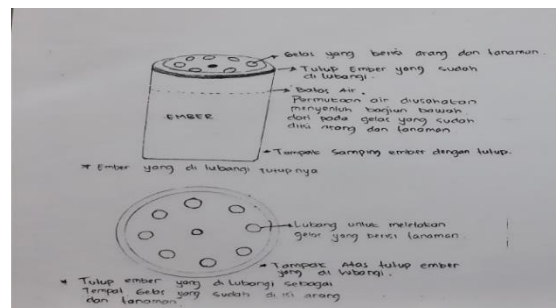 Gelas yang berisi arang dan tanaman.
Tutup Ember yang sudah
di lubangi.
Batas Air.
Permukaan air diusahakan
menyentuh bagian bawah
dari pada gelas yang sudah
diisi arang dan tanaman
EMBER
Tampak Samping ember dengan tutup.
* Ember yang di lubangi tutupnya
Lubang untuk meletakan
gelas yang berisi tanaman.
Tampak Atas tutup ember
yang di lubangi.
* Tutup ember yang di lubangi sebagai
Tempat Gelas yang sudah di isi arang
dan tanaman.